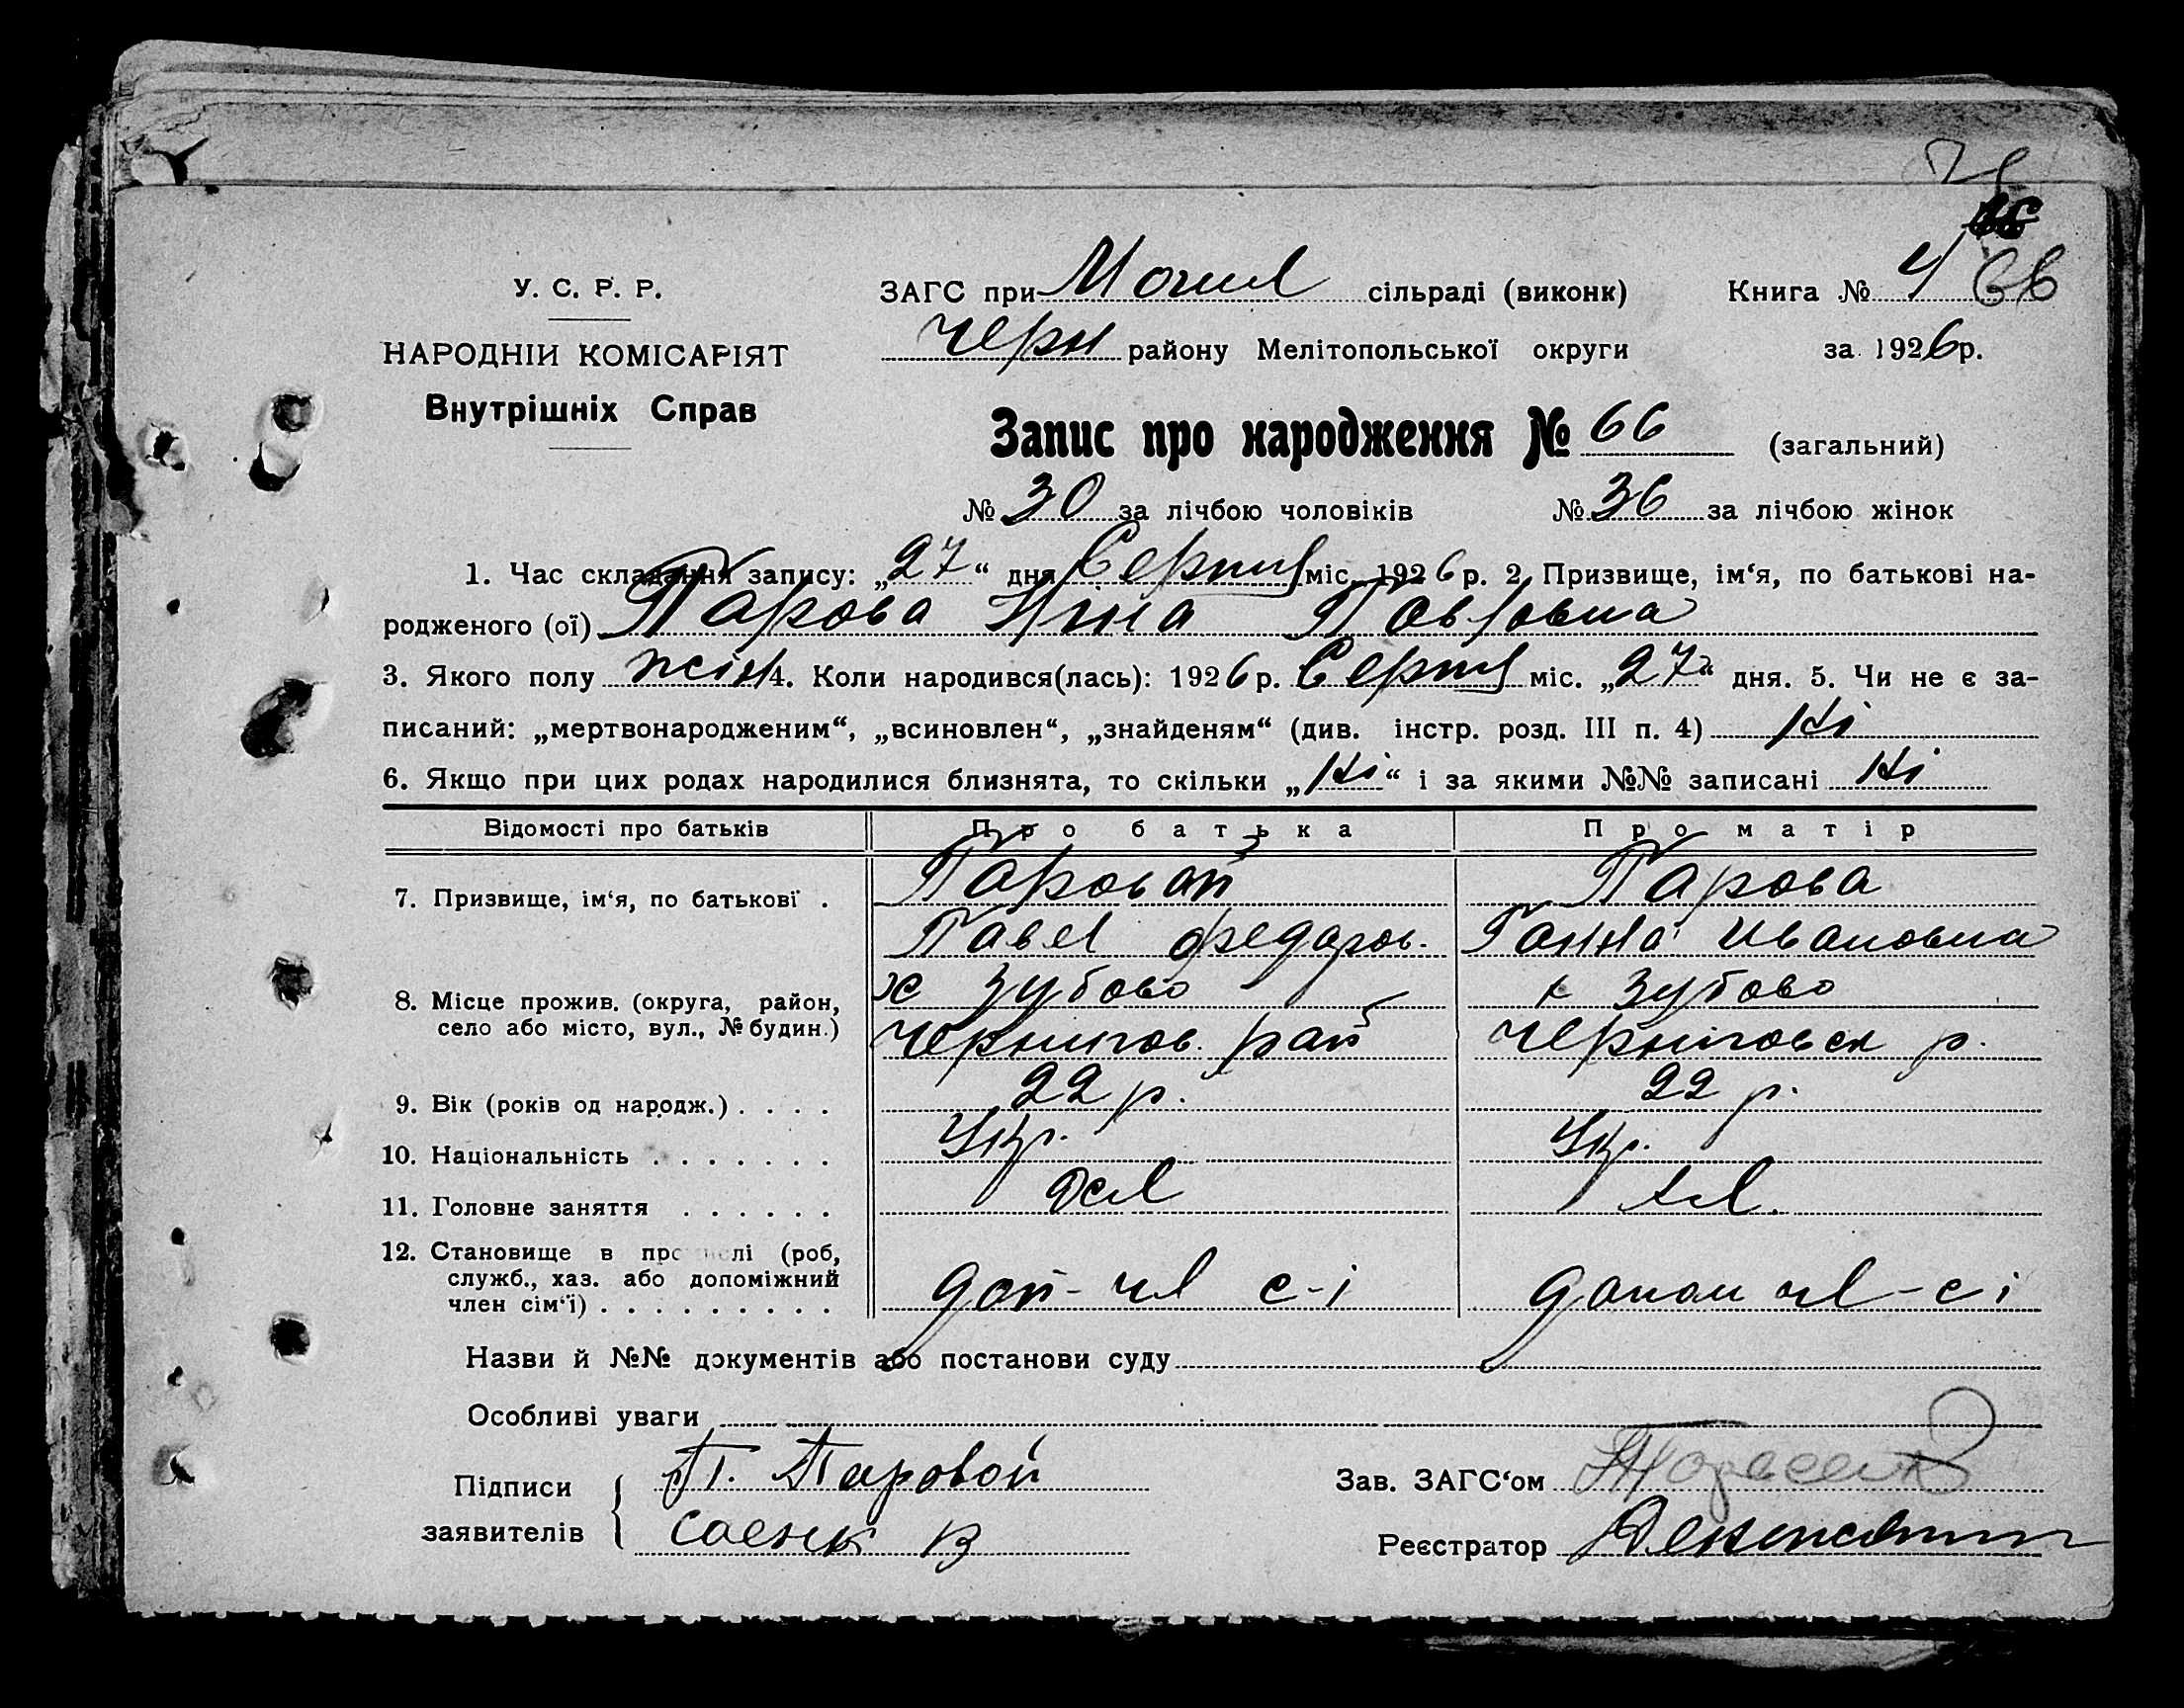 У. С. Р. Р.
НАРОДНІЙ КОМІСАРІЯТ
Внутрішніх Справ
ЗАГС при Могил сільраді (виконк)
Книга № 4
66
черн району Мелітопольської округи
за 1926р.
Запис про народження № 66 (загальний)
№ 30 за лічбою чоловіків № 36 за лічбою жінок
1. Час складання запису: „27“ дня Серпня міс. 1926 р. 2 Призвище, ім‘я, по батькові на-
родженого (ої) Парова Ніна Повловна
3. Якого полу жін 4. Коли народився(лась): 1926 р. Серпня міс. „27“ дня. 5. Чи не є за-
писаний: „мертвонародженим“, „всиновлен“, „знайденям“ (див. інстр. розд. III п. 4) Ні
6. Якщо при цих родах народилися близнята, то скільки „Ні“ і за якими №№ записані Ні
Відомості про батьків Про батька Про матір
7. Призвище, ім‘я, по батькові . Паровой Парова
Павел Федоров. Ганна Ивановна
8. Місце прожив. (округа, район, х Зубово х Зубово
село або місто, вул., № будин.) Чернигов. рай Черніговск р.
9. Вік (років од народж.) . . . . 22 р. 22 р.
10. Національність . . . . . . . Укр. Укр.
11. Головне заняття . . . . . .
12. Становище в промислі (роб,
служб., хаз. або допоміжний доп- чл с-і допом чл-с і
член сім‘ї) . . . . . . . . .
Назви й №№ документів або постанови суду
Особливі уваги
Підписи П. Паровой
заявителів Саенк В
Зав. ЗАГС‘ом
Реєстратор